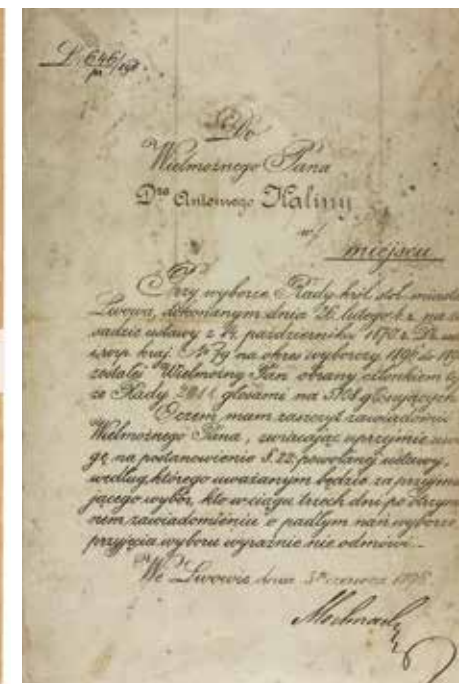 L. 646/pr
Do
Wielmożnego Pana
Dra Antoniego Kaliny
w/
miejscu
Przy wyborze Rady król. stoł. miasta
Lwowa, dokonanym dnia 26 lutego b. r. na
sadzie ustawy z 14 października 1870 r. Dz. ust
i rozp. kraj. No 79 na okres wyborczy
został Wielmożny Pan obrany członkiem
że Rady 2011 głosami na głosujących
O czem mam zaszczyt zawiadomić
Wielmożnego Pana, zwracając uprzejmie uwa
gę na postanowienie § 22 powołanej ustawy,
według którego uważanym będzie za przyjmu
jącego wybór, kto w ciągu trzech dni po otrzyma
nem zawiadomieniu o padłym nań wyborze
przyjęcia wyboru wyraźnie nie odmówi.
We Lwowie dnia czerwca